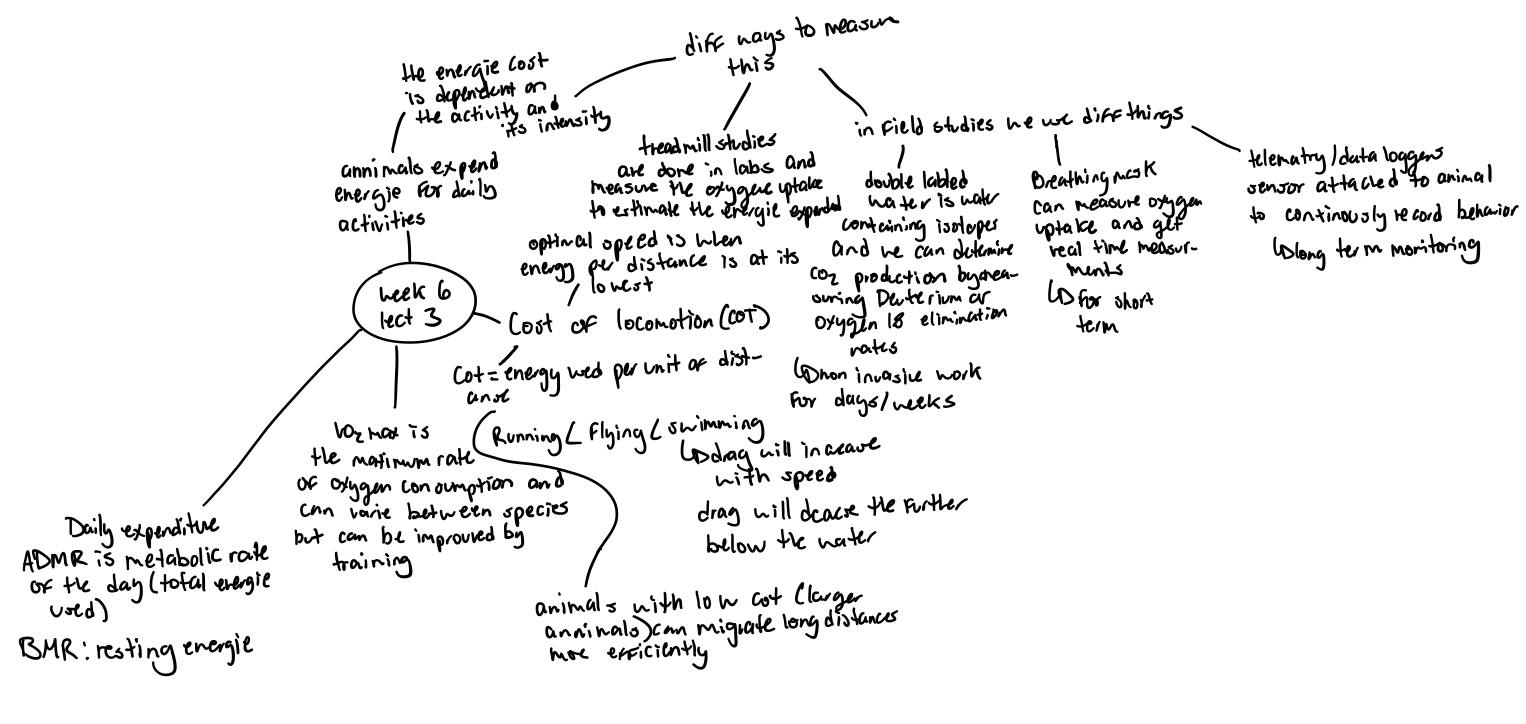 diff ways to measure
this
the energie cost
is dependent on
the activity and
its intensity
annimals expend
energie for daily
activities
treadmill studies
are done in labs and
measure the oxygene uptake
to estimate the energie expended
in field studies we use diff things
double labled
water is water
containing isotopes
and we can determine
CO2 production by mea-
suring Deuterium or
oxygen 18 elimination
rates
↳ non invasive work
for days/weeks
Breathing mask
can measure oxygen
uptake and get
real time measur-
ments
↳ for short
term
telemetry/data loggers
sensor attached to animal
to continously record behavior
↳ long term monitoring
week 6
lect 3
optimal speed is when
energy per distance is at its
lowest
Cost of locomotion (COT)
Cot = energy used per unit of dist-
anse
Running < Flying < swimming
↳ drag will increase
with speed
drag will dcease the further
below the water
animals with low cot (larger
annimals) can migrate long distances
more efficiently
VO2 max is
the maximum rate
of oxygen consumption and
can varie between species
but can be improved by
training
Daily expenditure
ADMR is metabolic rate
of the day (total energie
used)
BMR: resting energie